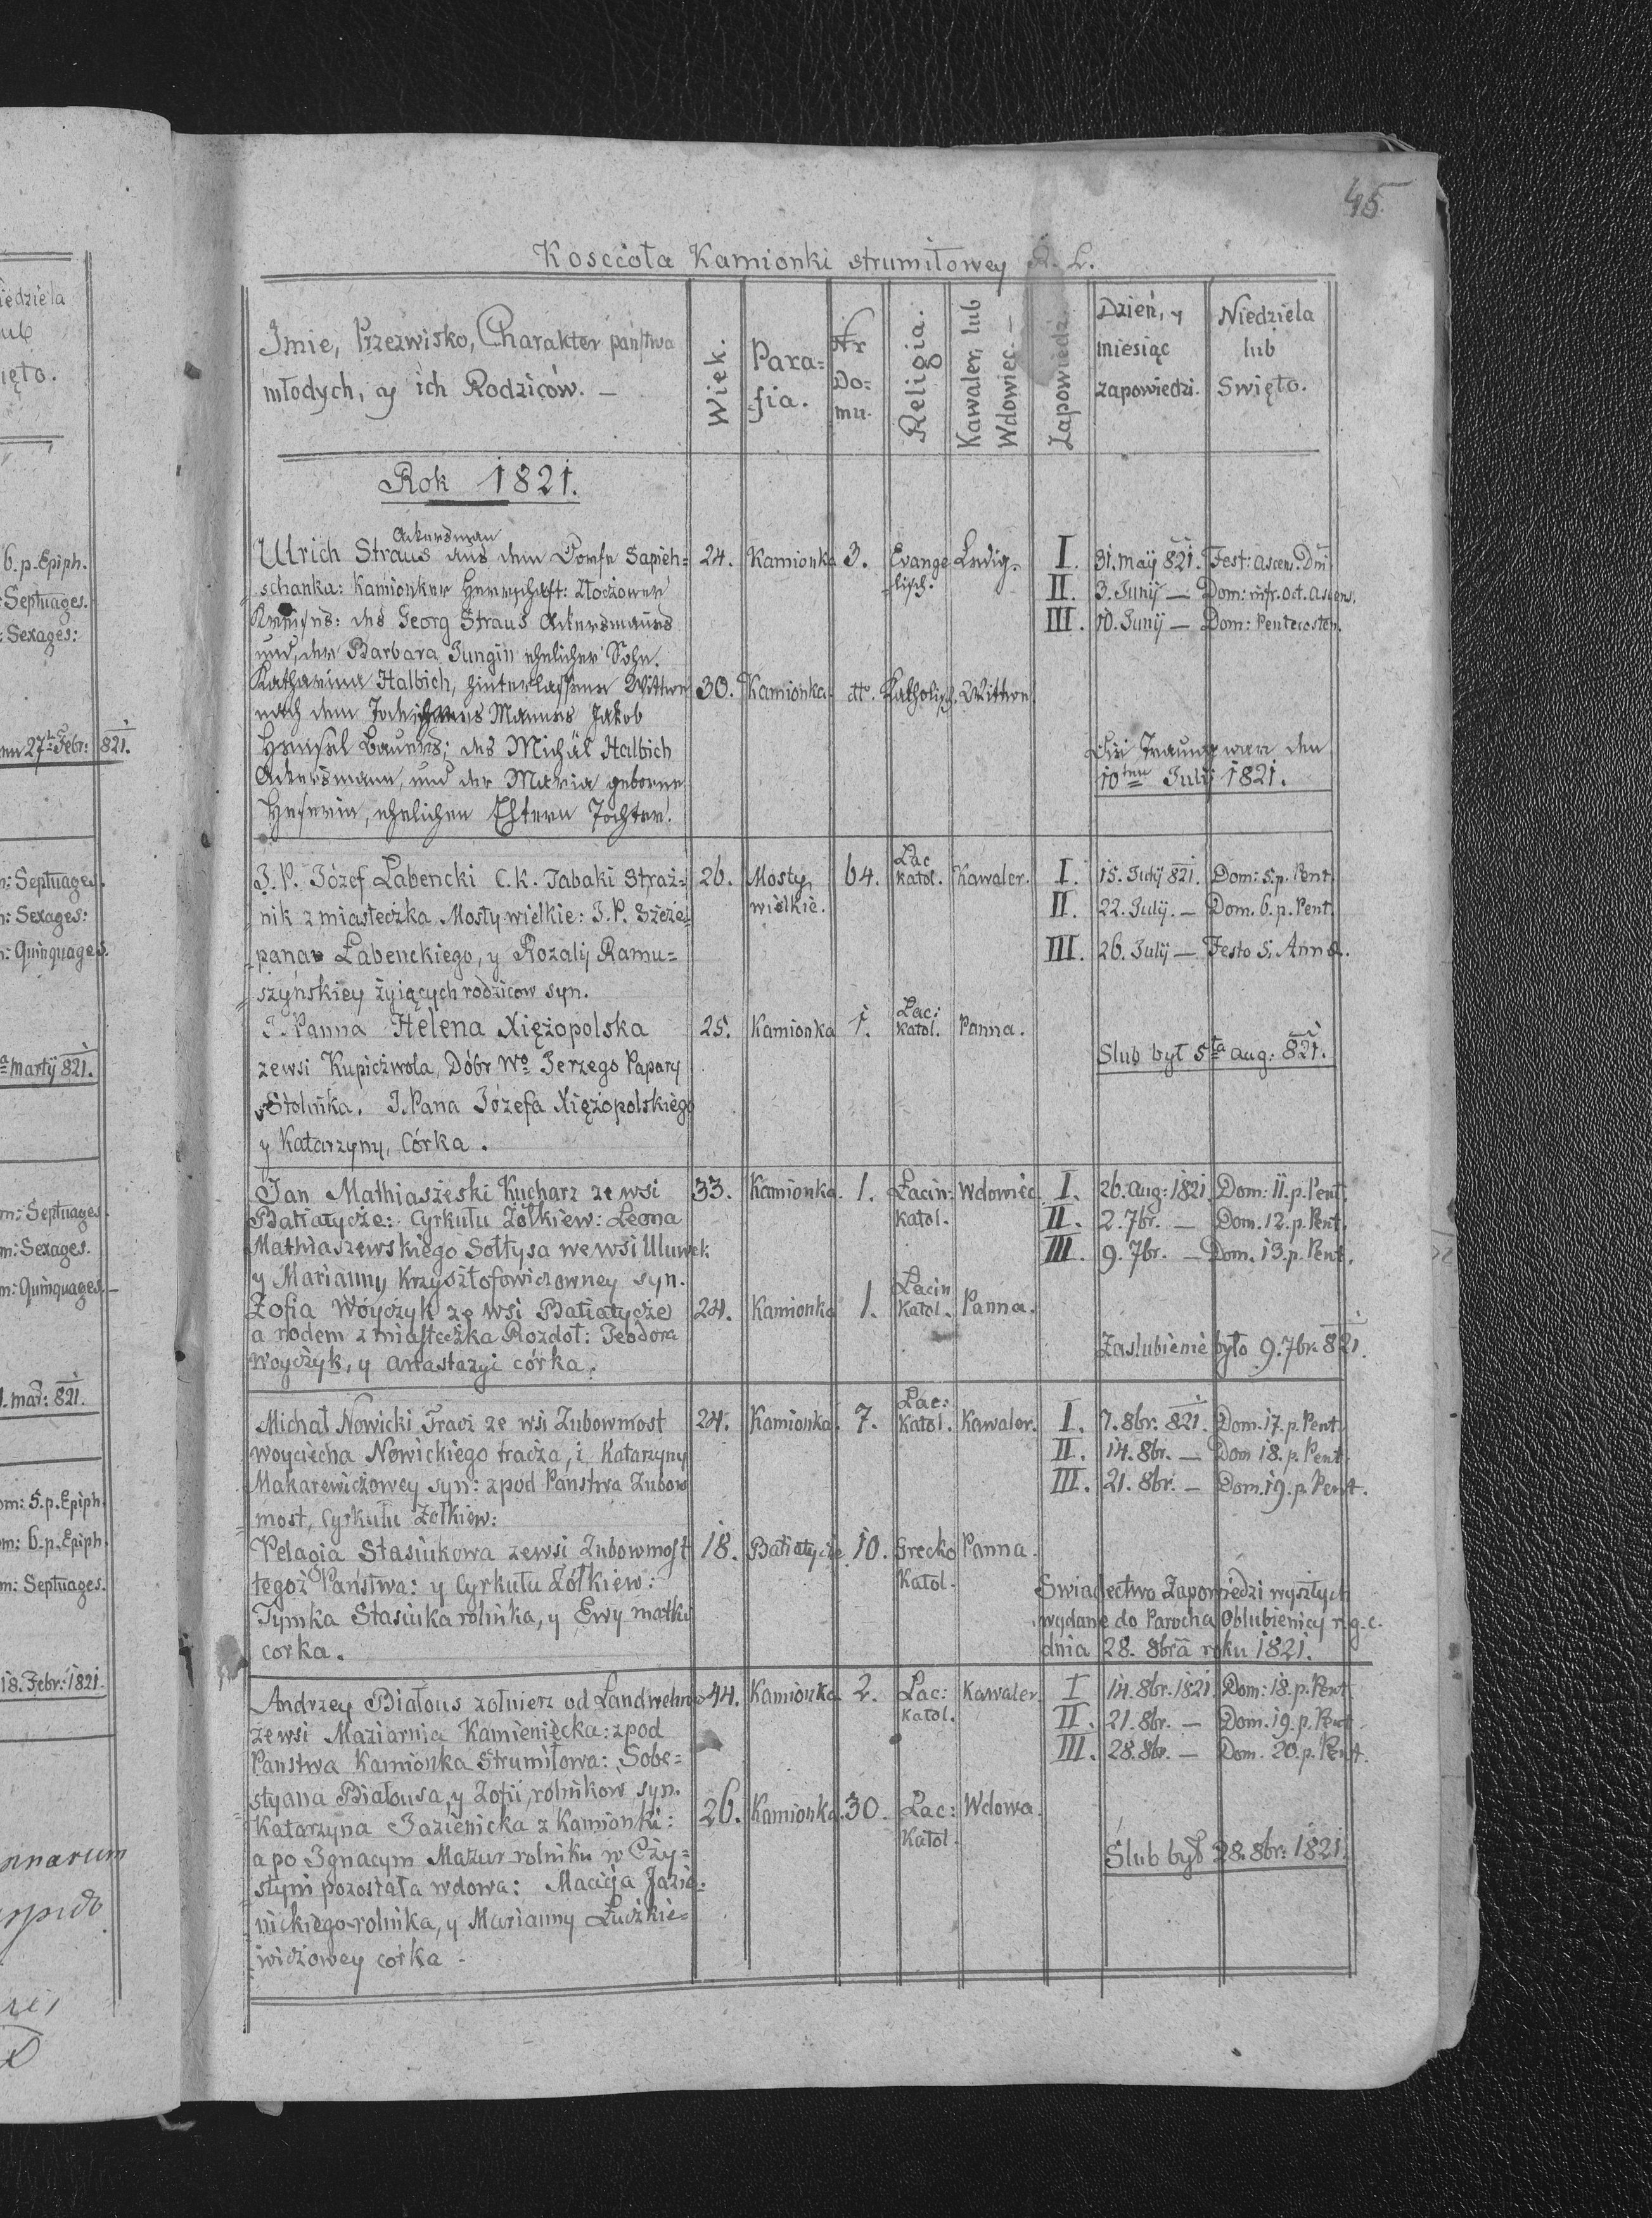 45
Koscioła Kamionki strumiłowey R. L.
Imie, Przezwisko, Charakter państwa
młodych, y ich Rodziców. —
Wiek.
Para=
fia.
Nr
Do=
mu.
Religia.
Kawaler, lub
Wdowiec. —
Zapowiedz.
Dzień, y
miesiąc
zapowiedzi.
Niedziela
lub
Swięto.
Rok 1821.
Ackersman
Ulrich Straus aus dem Dorfe Sapieh= 24. Kamionka 3. Evange Ledig. I. 31. maÿ 821. Fest: ascens. Dni
schanka: Kamionker Herrschaft: Złoczower lisch. II. 3. Junÿ — Dom: infr. oct. ascens.
Kreises: des Georg Straus Ackersmanns III. 10. Junÿ — Dom: Pentecosten.
und, der Barbara Jungin ehelicher Sohn.
Katharina Halbich, hinterlassene Wittwe 30. Kamionka. dtto. Katholisch. Wittwe
nach dem Tode ihres Mannes Jakob
Hensel Bauers; des Michäl Halbich Die Trauung war den
Ackersmann, und der Maria geborne 10ten Julÿ 1821.
Heserin, ehelichen Eltern Tochter.
J. P. Józef Łabencki C. K. Tabaki Straż= 26. Mosty 64. Lac Katol. Kawaler. I. 15. Julÿ 821. Dom: 5. p. Pent.
nik z miasteczka Mosty wielkie: J. P. Szcze= wielkie. II. 22. Julÿ. — Dom. 6. p. Pent.
pana Łabenckiego, y Rozalÿ Ramu= III. 26. Julÿ — Festo S. Anna.
szyńskiey żyiących rodzicow syn.
J. Panna Helena Xiężopolska 25. Kamionka 1. Lac: Katol. Panna.
zewsi Kupiczwola, Dóbr Wo Jerzego Papary Slub był 5ta aug: 821.
Stolnika. J. Pana Józefa Xiężopolskiego
y Katarzyny, Córka.
Jan Mathiaszeski Kucharz ze wsi 33. Kamionka. 1. Lacin: Wdowiec. I. 26. aug: 1821. Dom: 11. p. Pent.
Batiatycze: Cyrkułu Żołkiew: Leona Katol. II. 2. 7br. — Dom. 12. p. Pent.
Mathiaszewskiego Sołtysa we wsi Uluwek III. 9. 7br. — Dom. 13. p. Pent.
y Marianny Krzysztofowiczowney syn.
Zofia Wóyczyk ze wsi Batiatycze 24. Kamionka 1. Lacin Katol. Panna.
a rodem z miasteczka Rozdoł: Teodora
Woyczyk, y Anastazyi córka. Zaslubienie było 9. 7br. 821.
Michał Nowicki Tracz ze wsi Zubowmost 24. Kamionka. 7. Lac: Katol. Kawaler. I. 7. 8br. 821. Dom. 17. p. Pent.
woyciecha Nowickiego tracza, i Katarzyny II. 14. 8br. — Dom 18. p. Pent.
Makarewiczowey syn: zpod Panstwa Zubow III. 21. 8br. — Dom. 19. p. Pent.
most, Cyrkułu Zołkiew:
Pelagia Stasiukowa zewsi Zubowmost 18. Batiatycze 10. Grecko Panna.
tegoż Państwa: y Cyrkułu Żołkiew: Katol. Swiadectwo Zapowiedzi wyszłych
Tymka Stasiuka rolnika, y Ewy matki wydane do Parocha Oblubienicy r. g. c.
corka. dnia 28. 8bra roku 1821.
Andrzey Białous zołnierz od Landwehru 44. Kamionka 2. Lac: Kawaler. I 14. 8br. 1821. Dom: 18. p. Pent.
zewsi Maziarnia Kamieniecka: zpod Katol. II. 21. 8br. — Dom. 19. p. Pent.
Panstwa Kamionka Strumiłowa: Sobe= III. 28. 8br. — Dom. 20. p. Pent.
styana Białousa, y Zofii, rolnikow syn.
Katarzyna Jazienicka z Kamionki: 26. Kamionka. 30. Lac: Wdowa.
a po Ignacym Mazur rolniku w Czy= Katol. Ślub był 28. 8br: 1821.
stym pozostała wdowa: Macieja Jazie=
nickiego rolnika, y Marianny Łuczkie=
wiczowey corka.
iedziela
ięto.
6. p. Epiph.
Septuages.
Sexages:
27 Febr: 821.
m: Septuages.
m: Sexages:
m: Quinquages.
martÿ 821.
m: Septuages.
m: Sexages.
m: Quinquages. —
mar: 821.
om: 5. p. Epiph.
om: 6. p. Epiph.
m: Septuages.
18. Febr: 1821.